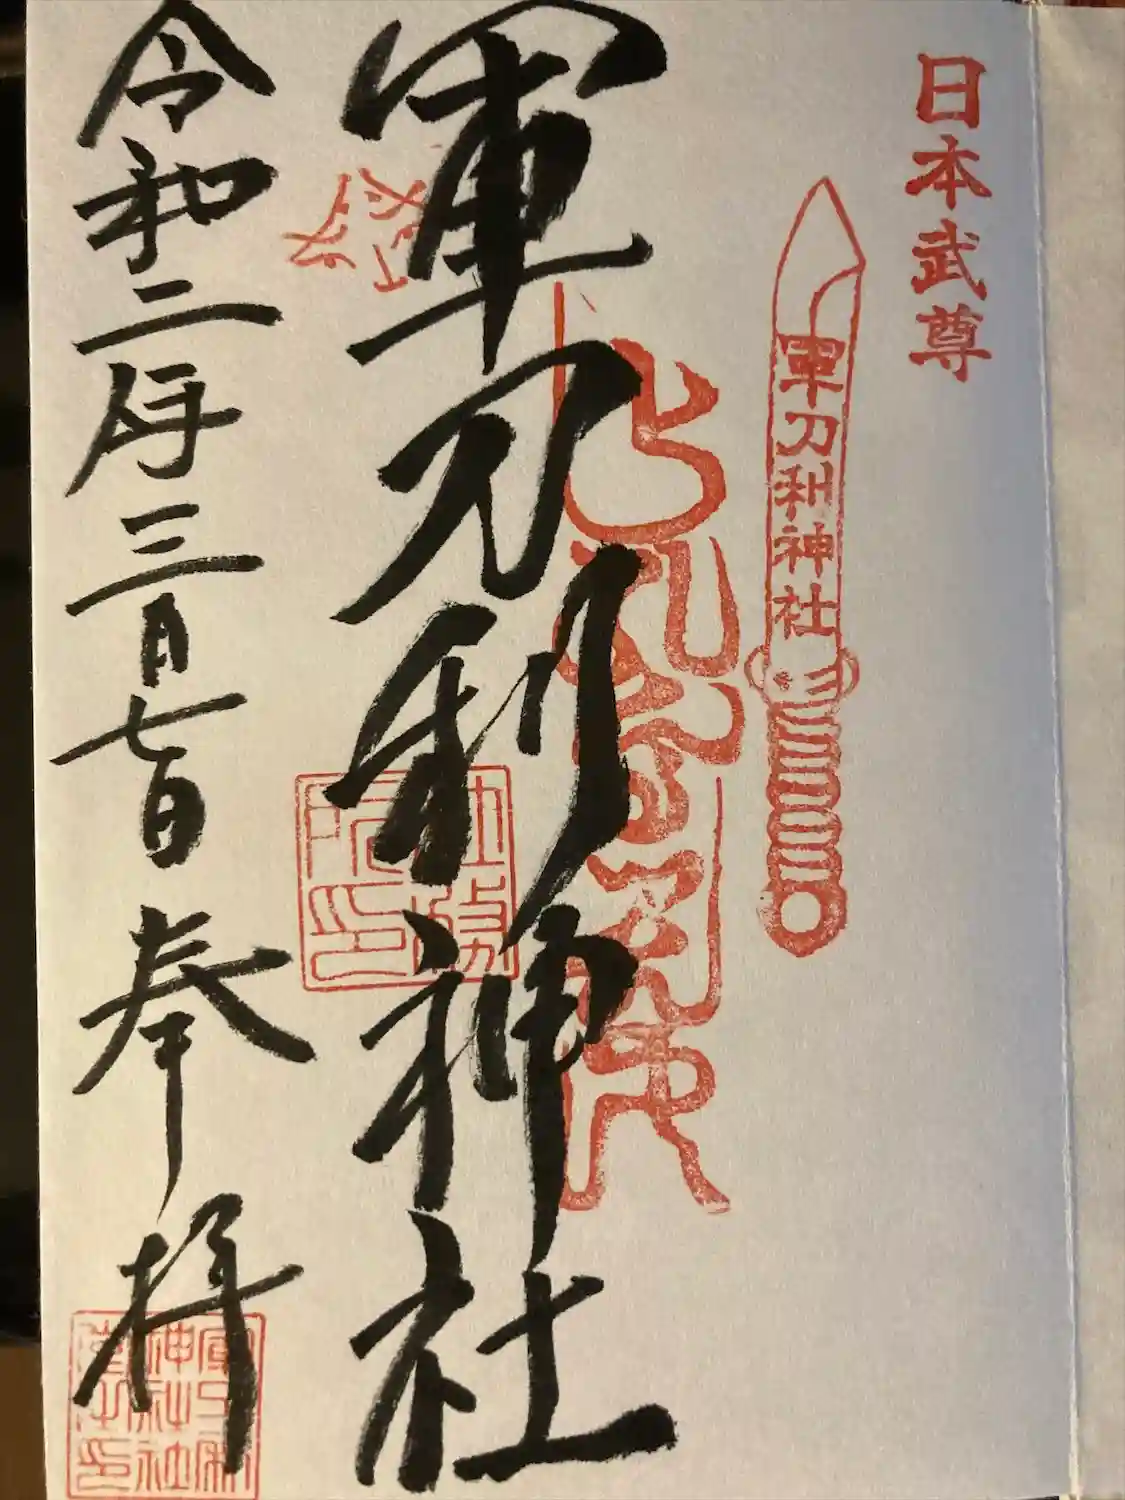 日本武尊
軍刀利神社
軍刀利神社
社務所印
令和二年三月七日 奉拝